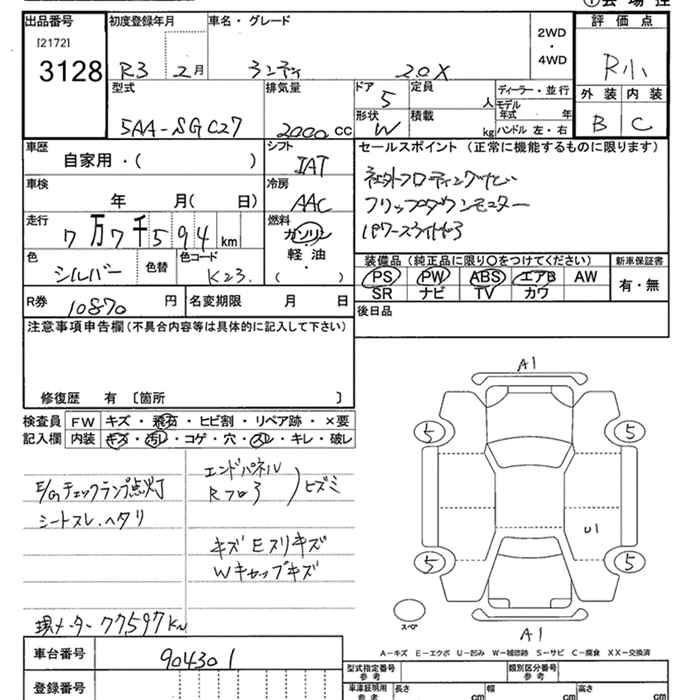 出品番号
[2172]
3128
初度登録年月
R3 2月
車名・グレード
ランディ 2.0X
2WD
・
4WD
評価点
R小
外装 内装
B C
型式
5AA-SGC27
排気量
2000 CC
ドア
5
定員
人
形状
W
積載
kg
ディーラー・並行
モデル
年式 年
ハンドル 左・右
車歴
自家用・( )
シフト
IAT
セールスポイント (正常に機能するものに限ります)
社外フロアティング
フリップダウンモニター
パワースライドドア
車検
年 月( 日)
冷房
AAC
走行
7万7千594 km
燃料
ガソリン
軽油
・
( )
色
シルバー
色替
色コード
K23.
装備品 (純正品に限り〇をつけてください)
PS PW ABS エアB AW
SR ナビ TV カワ
新車保証書
有・無
R券
10870 円
名変期限 月 日
後日品
注意事項申告欄(不具合内容等は具体的に記入して下さい)
修復歴 有 〔箇所 〕
検査員
記入欄
FW キズ・飛石・ヒビ割・リペア跡・×要
内装 キズ・汚レ・コゲ・穴・スレ・キレ・破レ
E/Gチェックランプ点灯
シートスレ.ヘタリ
エンドパネル
Rフロア
ヒズミ
キズ Eスリキズ
Wキャップキズ
現メーター 77597Km
A1
5
5
U1
5
5
スペア
A1
A-キズ E-エクボ U-凹み W-補修跡 S-サビ C-腐食 XX-交換済
車台番号
904301
登録番号
型式指定番号
参考
類別区分番号
参考
車庫証明用
参考
長さ cm
幅 cm
高さ cm